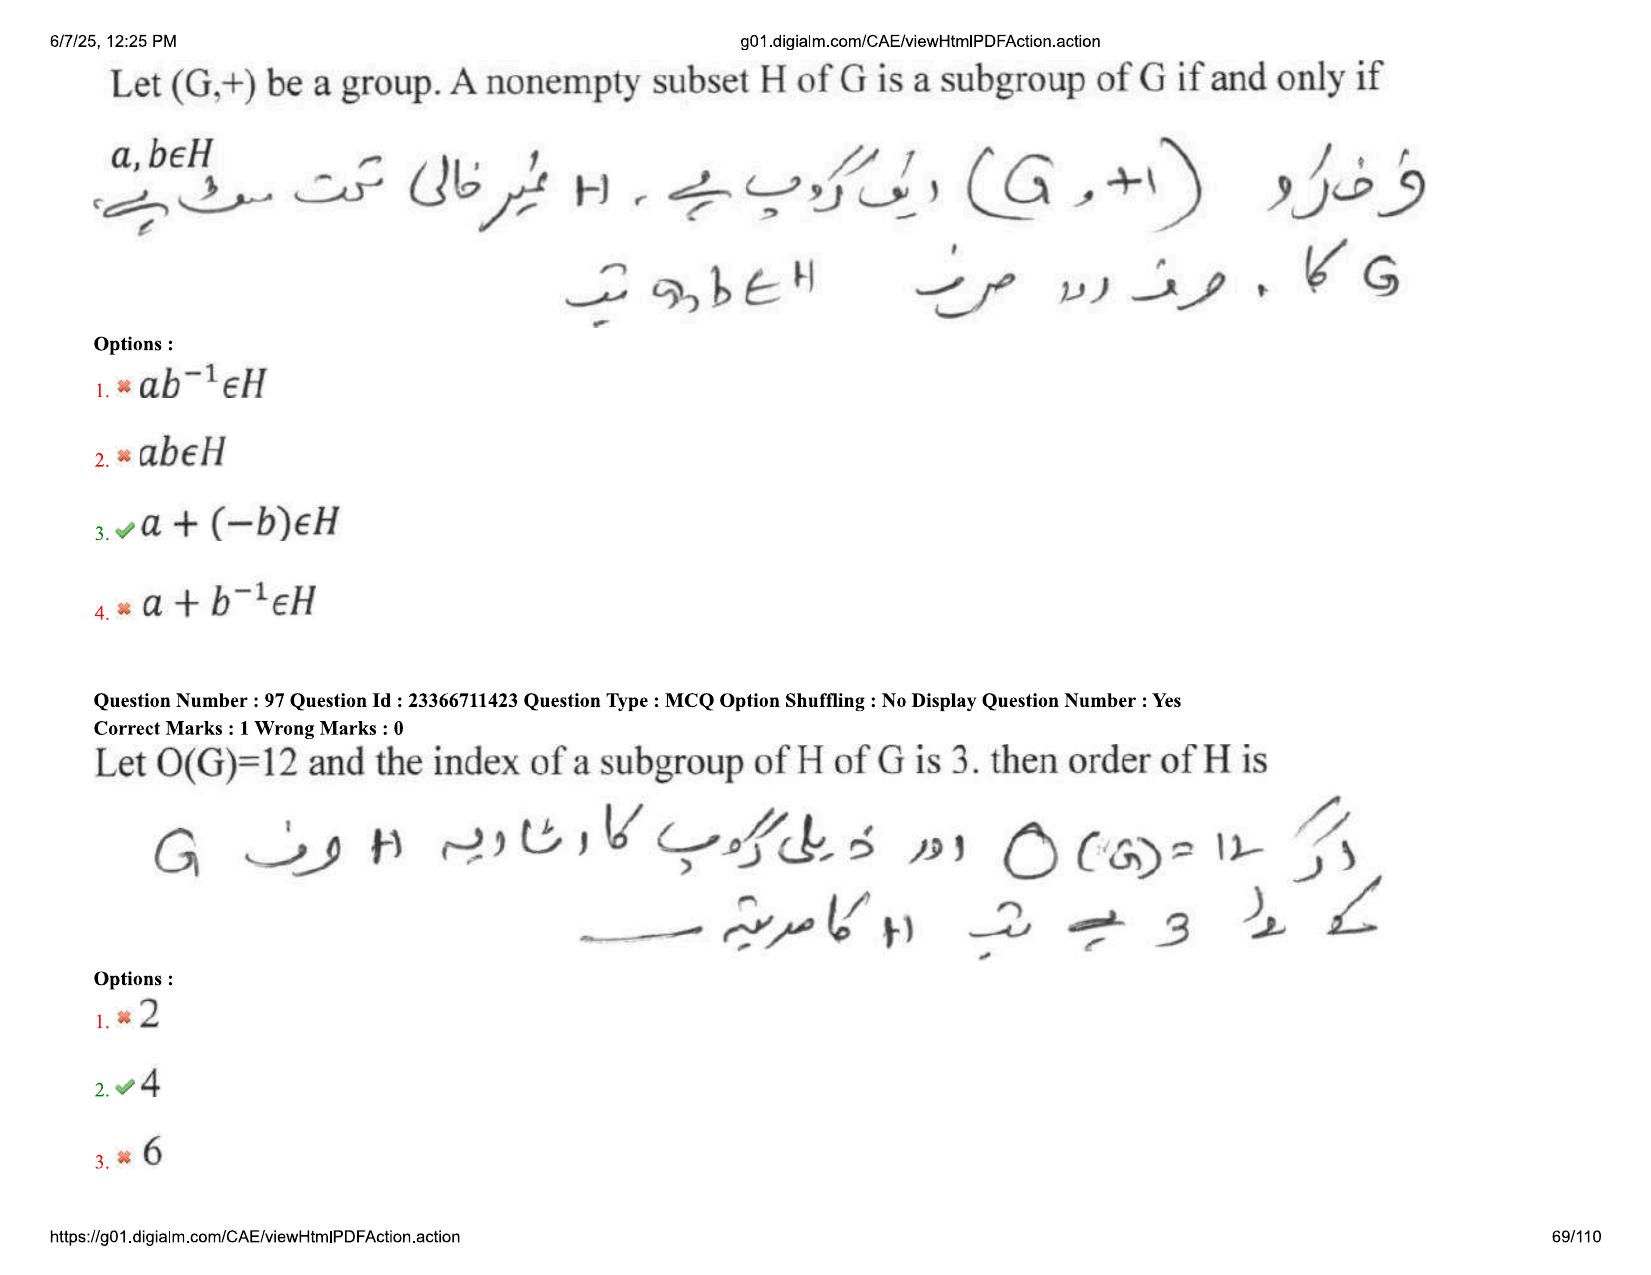 6/7/25, 12:25 PM g01.digialm.com/CAE/viewHtmlPDFAction.action
Let (G,+) be a group. A nonempty subset H of G is a subgroup of G if and only if
a, bϵH
(G , +) گروپ ہے ، H غیر خالی تحت سٹ ہے
G کا ، صرف اور صرف a, b ∈ H تب
Options :
1. ab⁻¹ϵH
2. abϵH
3. a + (−b)ϵH
4. a + b⁻¹ϵH
Question Number : 97 Question Id : 23366711423 Question Type : MCQ Option Shuffling : No Display Question Number : Yes
Correct Marks : 1 Wrong Marks : 0
Let O(G)=12 and the index of a subgroup of H of G is 3. then order of H is
اگر O(G) = 12 اور ذیلی گروپ کا H G
کے 3 ہے تب H کا مرتبہ
Options :
1. 2
2. 4
3. 6
https://g01.digialm.com/CAE/viewHtmlPDFAction.action 69/110